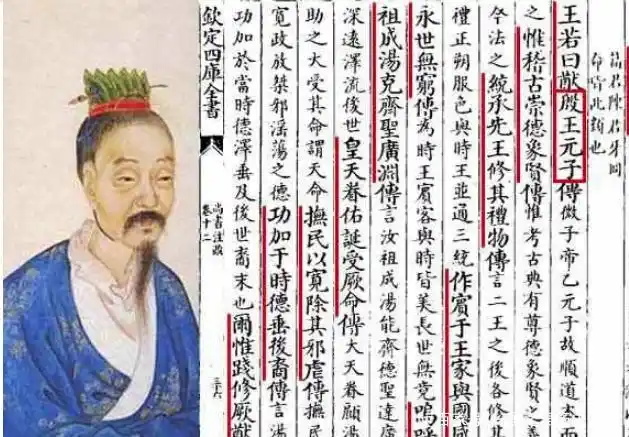 君陳君牙
命皆此類也
王若曰猷殷王元子傳微子帝乙元子故順道本而
之惟稽古崇德象賢傳惟考古典有尊德象賢之義
今法之統承先王修其禮物傳言二王之後各修其
禮正朔服色與時王並通三統作賓于王家與國咸
永世無窮傳為時王賓客與時皆美長世無竟嗚呼
祖成湯克齊聖廣淵傳言汝祖成湯能齊德聖達廣
深遠澤流後世皇天眷佑誕受厥命傳大天眷顧湯
助之大受其命謂天命撫民以寬除其邪虐傳撫民
寬政放桀邪淫蕩之德功加于時德垂後裔傳言湯
功加於當時德澤垂及後世裔末也爾惟踐修厥猷
欽定四庫全書
尚書注疏
卷十二
三十六